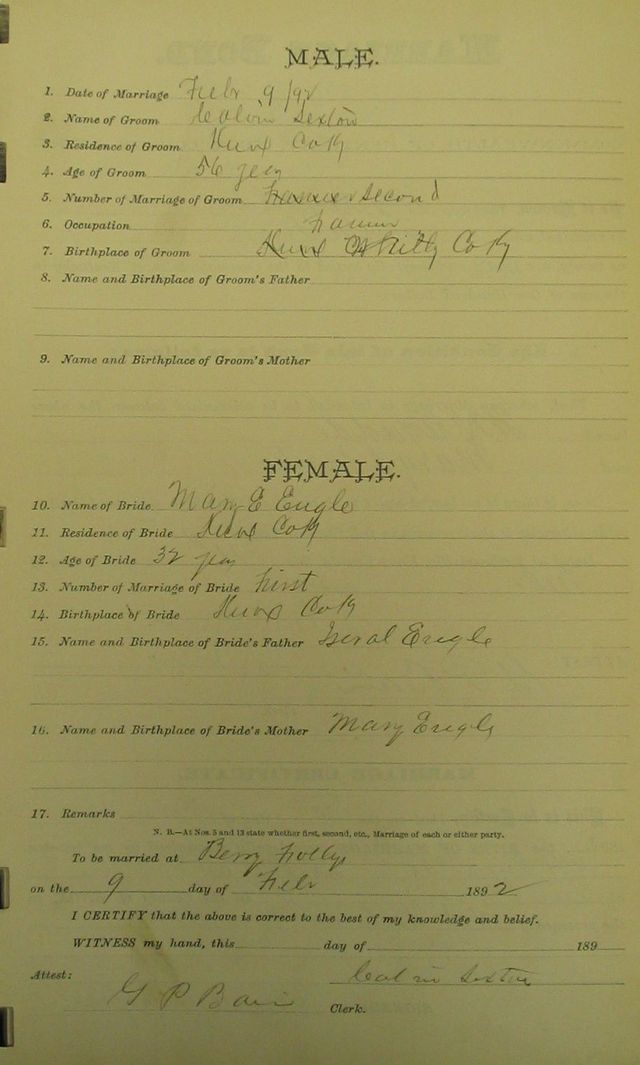 MALE.
1. Date of Marriage Febr 9/92
2. Name of Groom Calvin Sexton
3. Residence of Groom Knox Co Ky
4. Age of Groom 56 years
5. Number of Marriage of Groom Second
6. Occupation Farmer
7. Birthplace of Groom Knox Whitly Co Ky
8. Name and Birthplace of Groom's Father
9. Name and Birthplace of Groom's Mother
FEMALE.
10. Name of Bride. Mary E Engle
11. Residence of Bride Knox Co Ky
12. Age of Bride 32 years
13. Number of Marriage of Bride First
14. Birthplace of Bride Knox Co Ky
15. Name and Birthplace of Bride's Father Engle
16. Name and Birthplace of Bride's Mother Mary Engle
17. Remarks
N. B.—At Nos. 5 and 13 state whether first, second, etc., Marriage of each or either party.
To be married at Berry
on the 9 day of Febr 1892
I CERTIFY that the above is correct to the best of my knowledge and belief.
WITNESS my hand, this day of 189
Attest: Calvin Sexton
G P Bain Clerk.